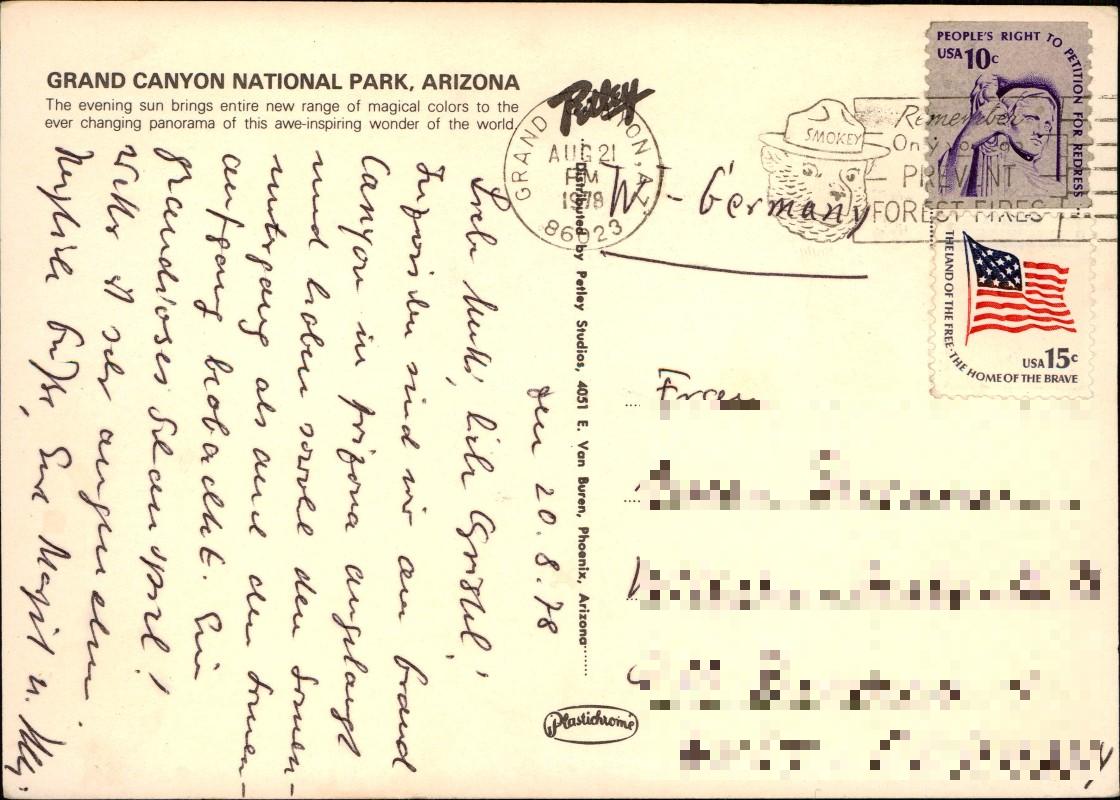 GRAND CANYON NATIONAL PARK, ARIZONA
The evening sun brings entire new range of magical colors to the
ever changing panorama of this awe-inspiring wonder of the world.
den 20.8.78
Liebe Mutti, liebe Christel!
Inzwischen sind wir am Grand
Canyon in Arizona angelangt
und haben sowohl den Sonnen-
untergang als auch den Sonnen-
aufgang beobachtet. Ein
grandioses Schauspiel!
Wetter ist sehr angenehm.
Herzliche Grüße, Eure Margit u.
Petley
Distributed by Petley Studios, 4051 E. Van Buren, Phoenix, Arizona
Plastichrome
GRAND CANYON, AZ
AUG 21
PM
1978
86023
SMOKEY
Remember
Only you can
PREVENT
FOREST FIRES
PEOPLE'S RIGHT TO PETITION FOR REDRESS
USA 10c
THE LAND OF THE FREE·THE HOME OF THE BRAVE
USA 15c
W-Germany
Frau